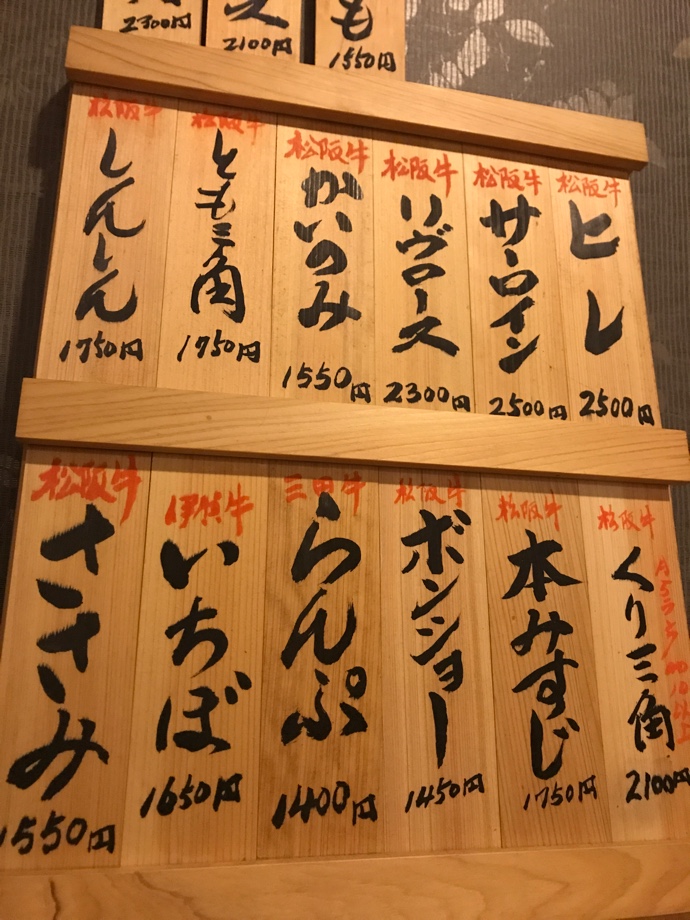 も
1550円
2100円
2300円
松阪牛
ヒレ
2500円
松阪牛
サーロイン
2500円
松阪牛
リヴロース
2300円
松阪牛
かいのみ
1550円
松阪牛
とも三角
1750円
松阪牛
しんしん
1750円
松阪牛
くり三角
2100円
松阪牛
本みすじ
1750円
松阪牛
ボンショー
1450円
三田牛
らんぷ
1400円
伊賀牛
いちぼ
1650円
松阪牛
ささみ
1550円